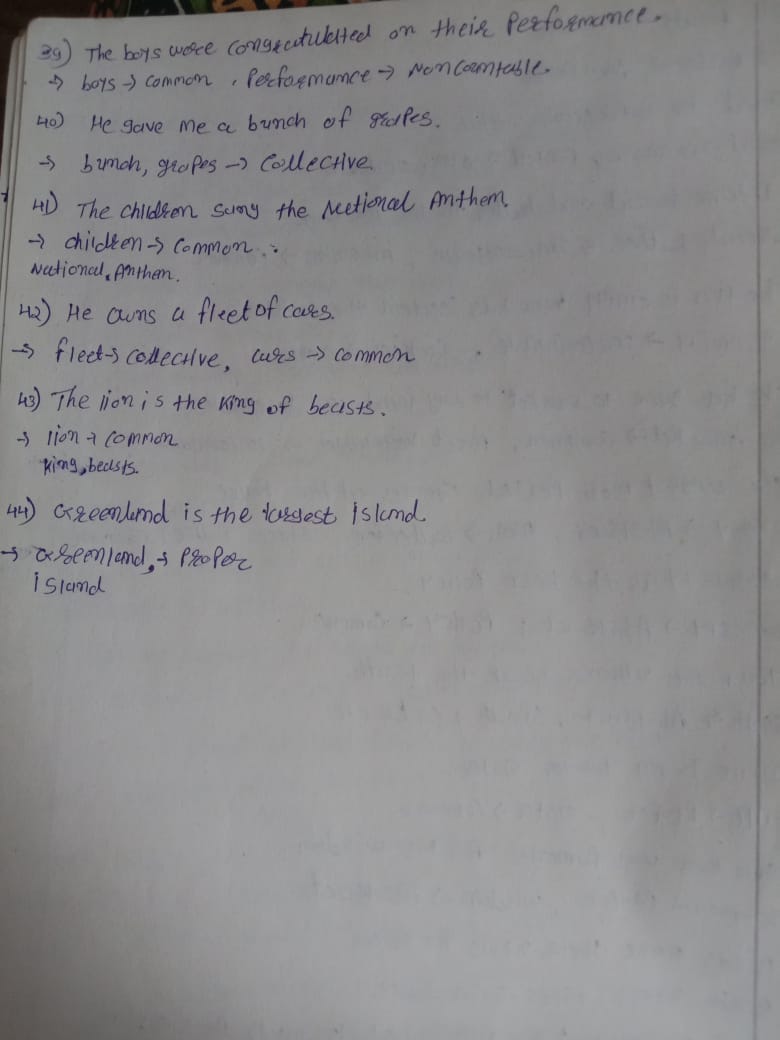 39) The boys were congratulated on their Performance.
→ boys → common, Performance → Noncountable.
40) He gave me a bunch of grapes.
→ bunch, grapes → Collective.
41) The children sung the National Anthem.
→ children → common.
National, Anthem.
42) He owns a fleet of cars.
→ fleet → collective, cars → common
43) The lion is the king of beasts.
→ lion → common
king, beasts.
44) Greenland is the largest island
→ Greenland, → Proper
island